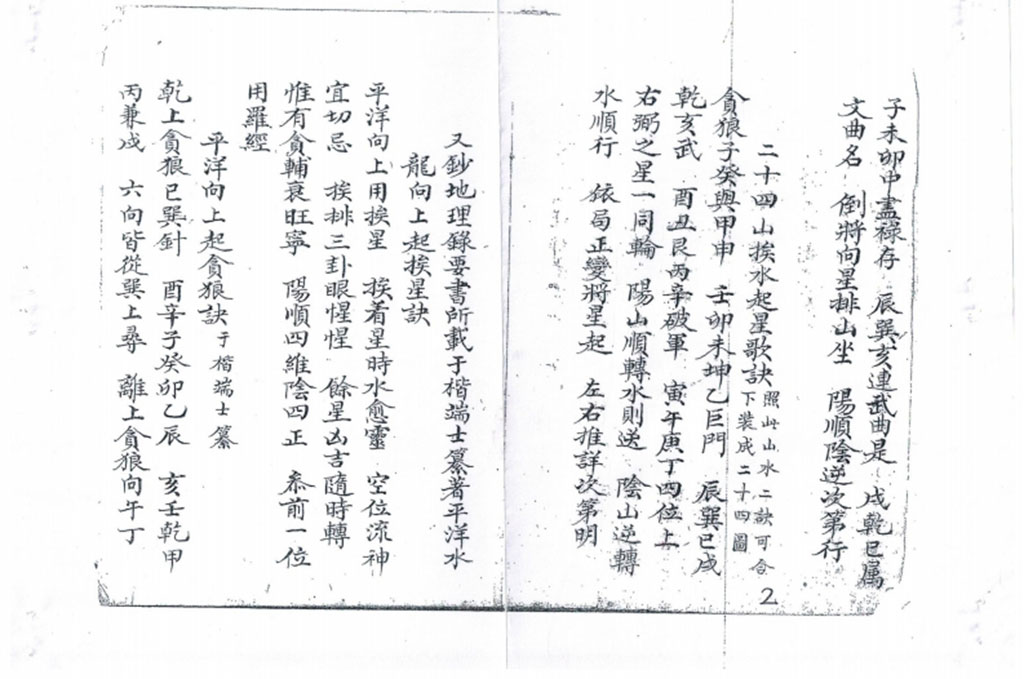 子未卯申盡祿存　辰巽亥連武曲是　戌乾巳属
文曲名　倒將向星排山坐　陽順陰逆次第行
二十四山挨水起星歌訣 照此山水二訣可合下装成二十四圖
貪狼子癸與甲申　壬卯未坤乙巨門　辰巽巳戌
乾亥武　酉丑艮丙辛破軍　寅午庚丁四位上
右弼之星一同輪　陽山順轉水則逆　陰山逆轉
水順行　依局正變將星起　左右推詳次第明
2
又鈔地理錄要書所載于楷端士纂著平洋水
龍向上起挨星訣
平洋向上用挨星　挨着星時水愈靈　空位流神
宜切忌　挨排三卦眼惺惺　餘星凶吉隨時轉
惟有貪輔衰旺寧　陽順四維陰四正　叅前一位
用羅經
平洋向上起貪狼訣 于楷端士纂
乾上貪狼巳巽針　酉辛子癸卯乙辰　亥壬乾甲
丙兼戍　六向皆從巽上尋　離上貪狼向午丁